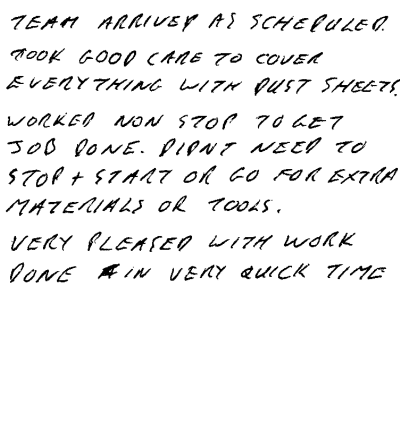 TEAM ARRIVED AS SCHEDULED.
TOOK GOOD CARE TO COVER
EVERYTHING WITH DUST SHEETS.
WORKED NON STOP TO GET
JOB DONE. DIDNT NEED TO
STOP + START OR GO FOR EXTRA
MATERIALS OR TOOLS.
VERY PLEASED WITH WORK
DONE IN VERY QUICK TIME